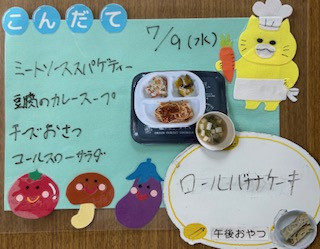 こんだて
7/9(水)
ミートソーススパゲティー
豆腐のカレースープ
チーズおさつ
コールスローサラダ
ロールバナナケーキ
午後おやつ